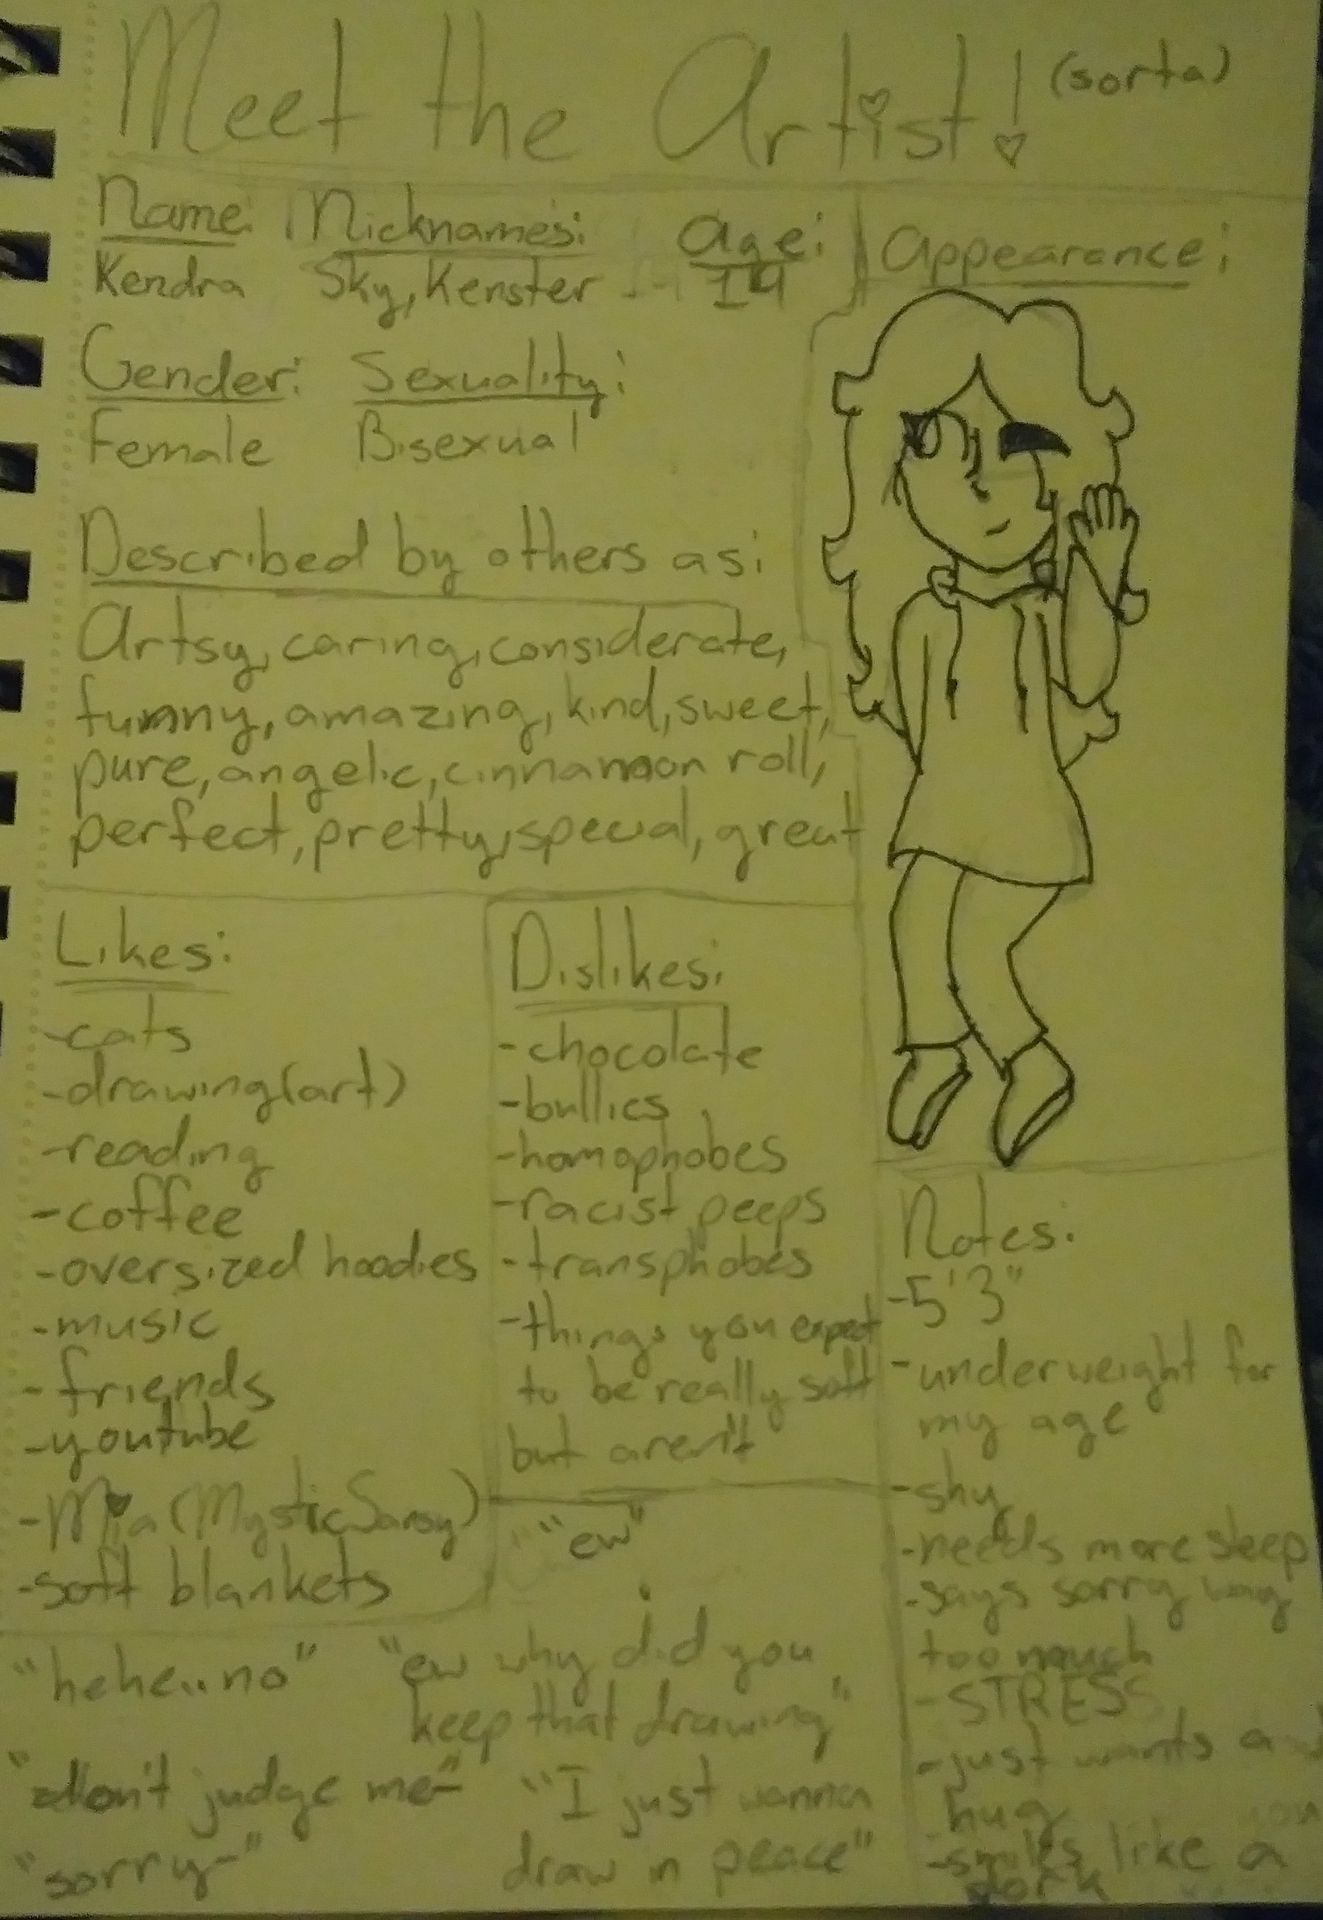 Meet the Artist! (sorta)
Name: Nicknames: Age:
Kendra Sky, Kenster 14
Appearance:
Gender: Sexuality:
Female Bisexual
Described by others as:
Artsy, caring, considerate,
funny, amazing, kind, sweet,
pure, angelic, cinnamon roll,
perfect, pretty, special, great
Likes:
-cats
-drawing(art)
-reading
-coffee
-oversized hoodies
-music
-friends
-youtube
-Mia (MysticSansy)
-soft blankets
Dislikes:
-chocolate
-bullies
-homophobes
-racist peeps
-transphobes
-things you expect
to be really soft
but aren't
Notes:
-5'3"
-underweight for
my age
-shy
-needs more sleep
-says sorry way
too much
-STRESS
-just wants a
hug
-smiles like a
dork
"ew"
"hehe..no" "ew why did you
keep that drawing"
"don't judge me-" "I just wanna
draw in peace"
"sorry-"